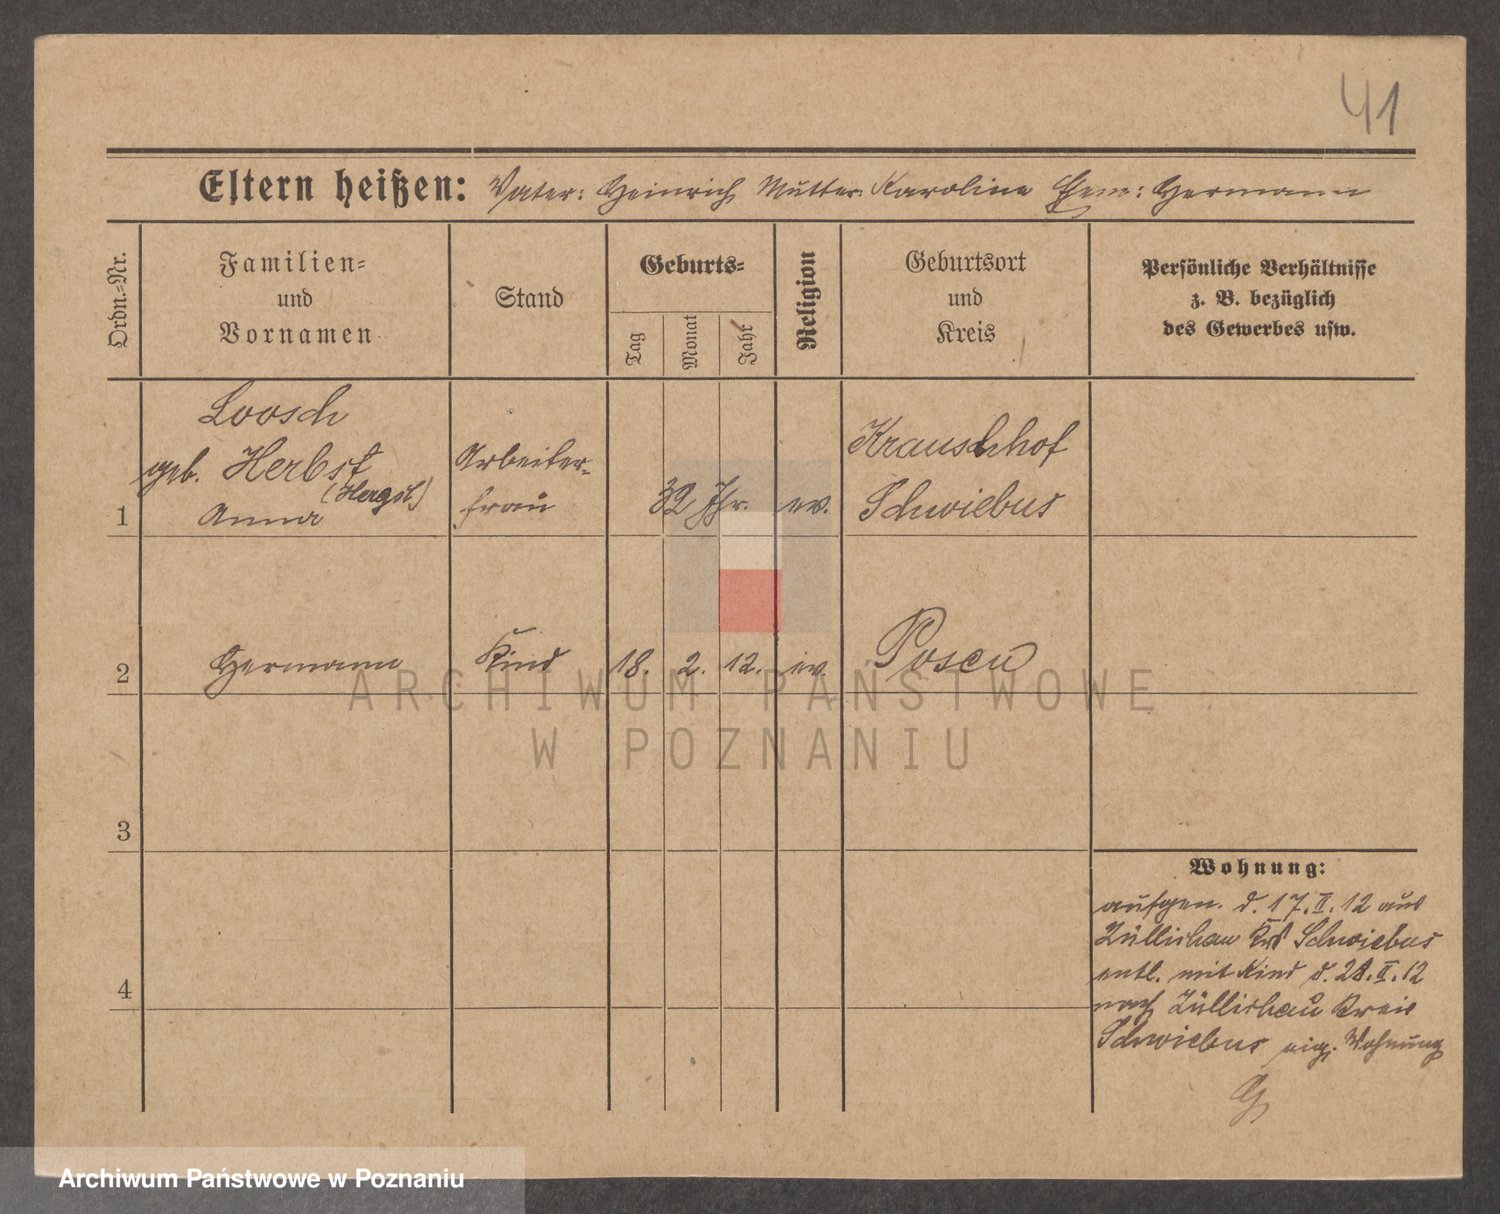 41
Eltern heißen: Vater: Heinrich Mutter: Karoline Ehem: Hermann
Ordn.-Nr.
Familien-
und
Vornamen
Stand
Geburts-
Tag
Monat
Jahr
Religion
Geburtsort
und
Kreis
Persönliche Verhältnisse
z. B. bezüglich
des Gewerbes usw.
1
Loosch
geb. Herbst
Anna
Arbeiter-
frau
32 Jhr.
ev.
Krauschhof
Schwiebus
2
Hermann
Kind
18. 2. 12.
ev.
Posen
3
4
Wohnung:
aufgen. d. 17. II. 12 aus
Züllichau Krs Schwiebus
entl. mit Kind d. 28. II. 12
nach Züllichau Kreis
Schwiebus eig. Wohnung
ARCHIWUM PAŃSTWOWE
W POZNANIU
Archiwum Państwowe w Poznaniu